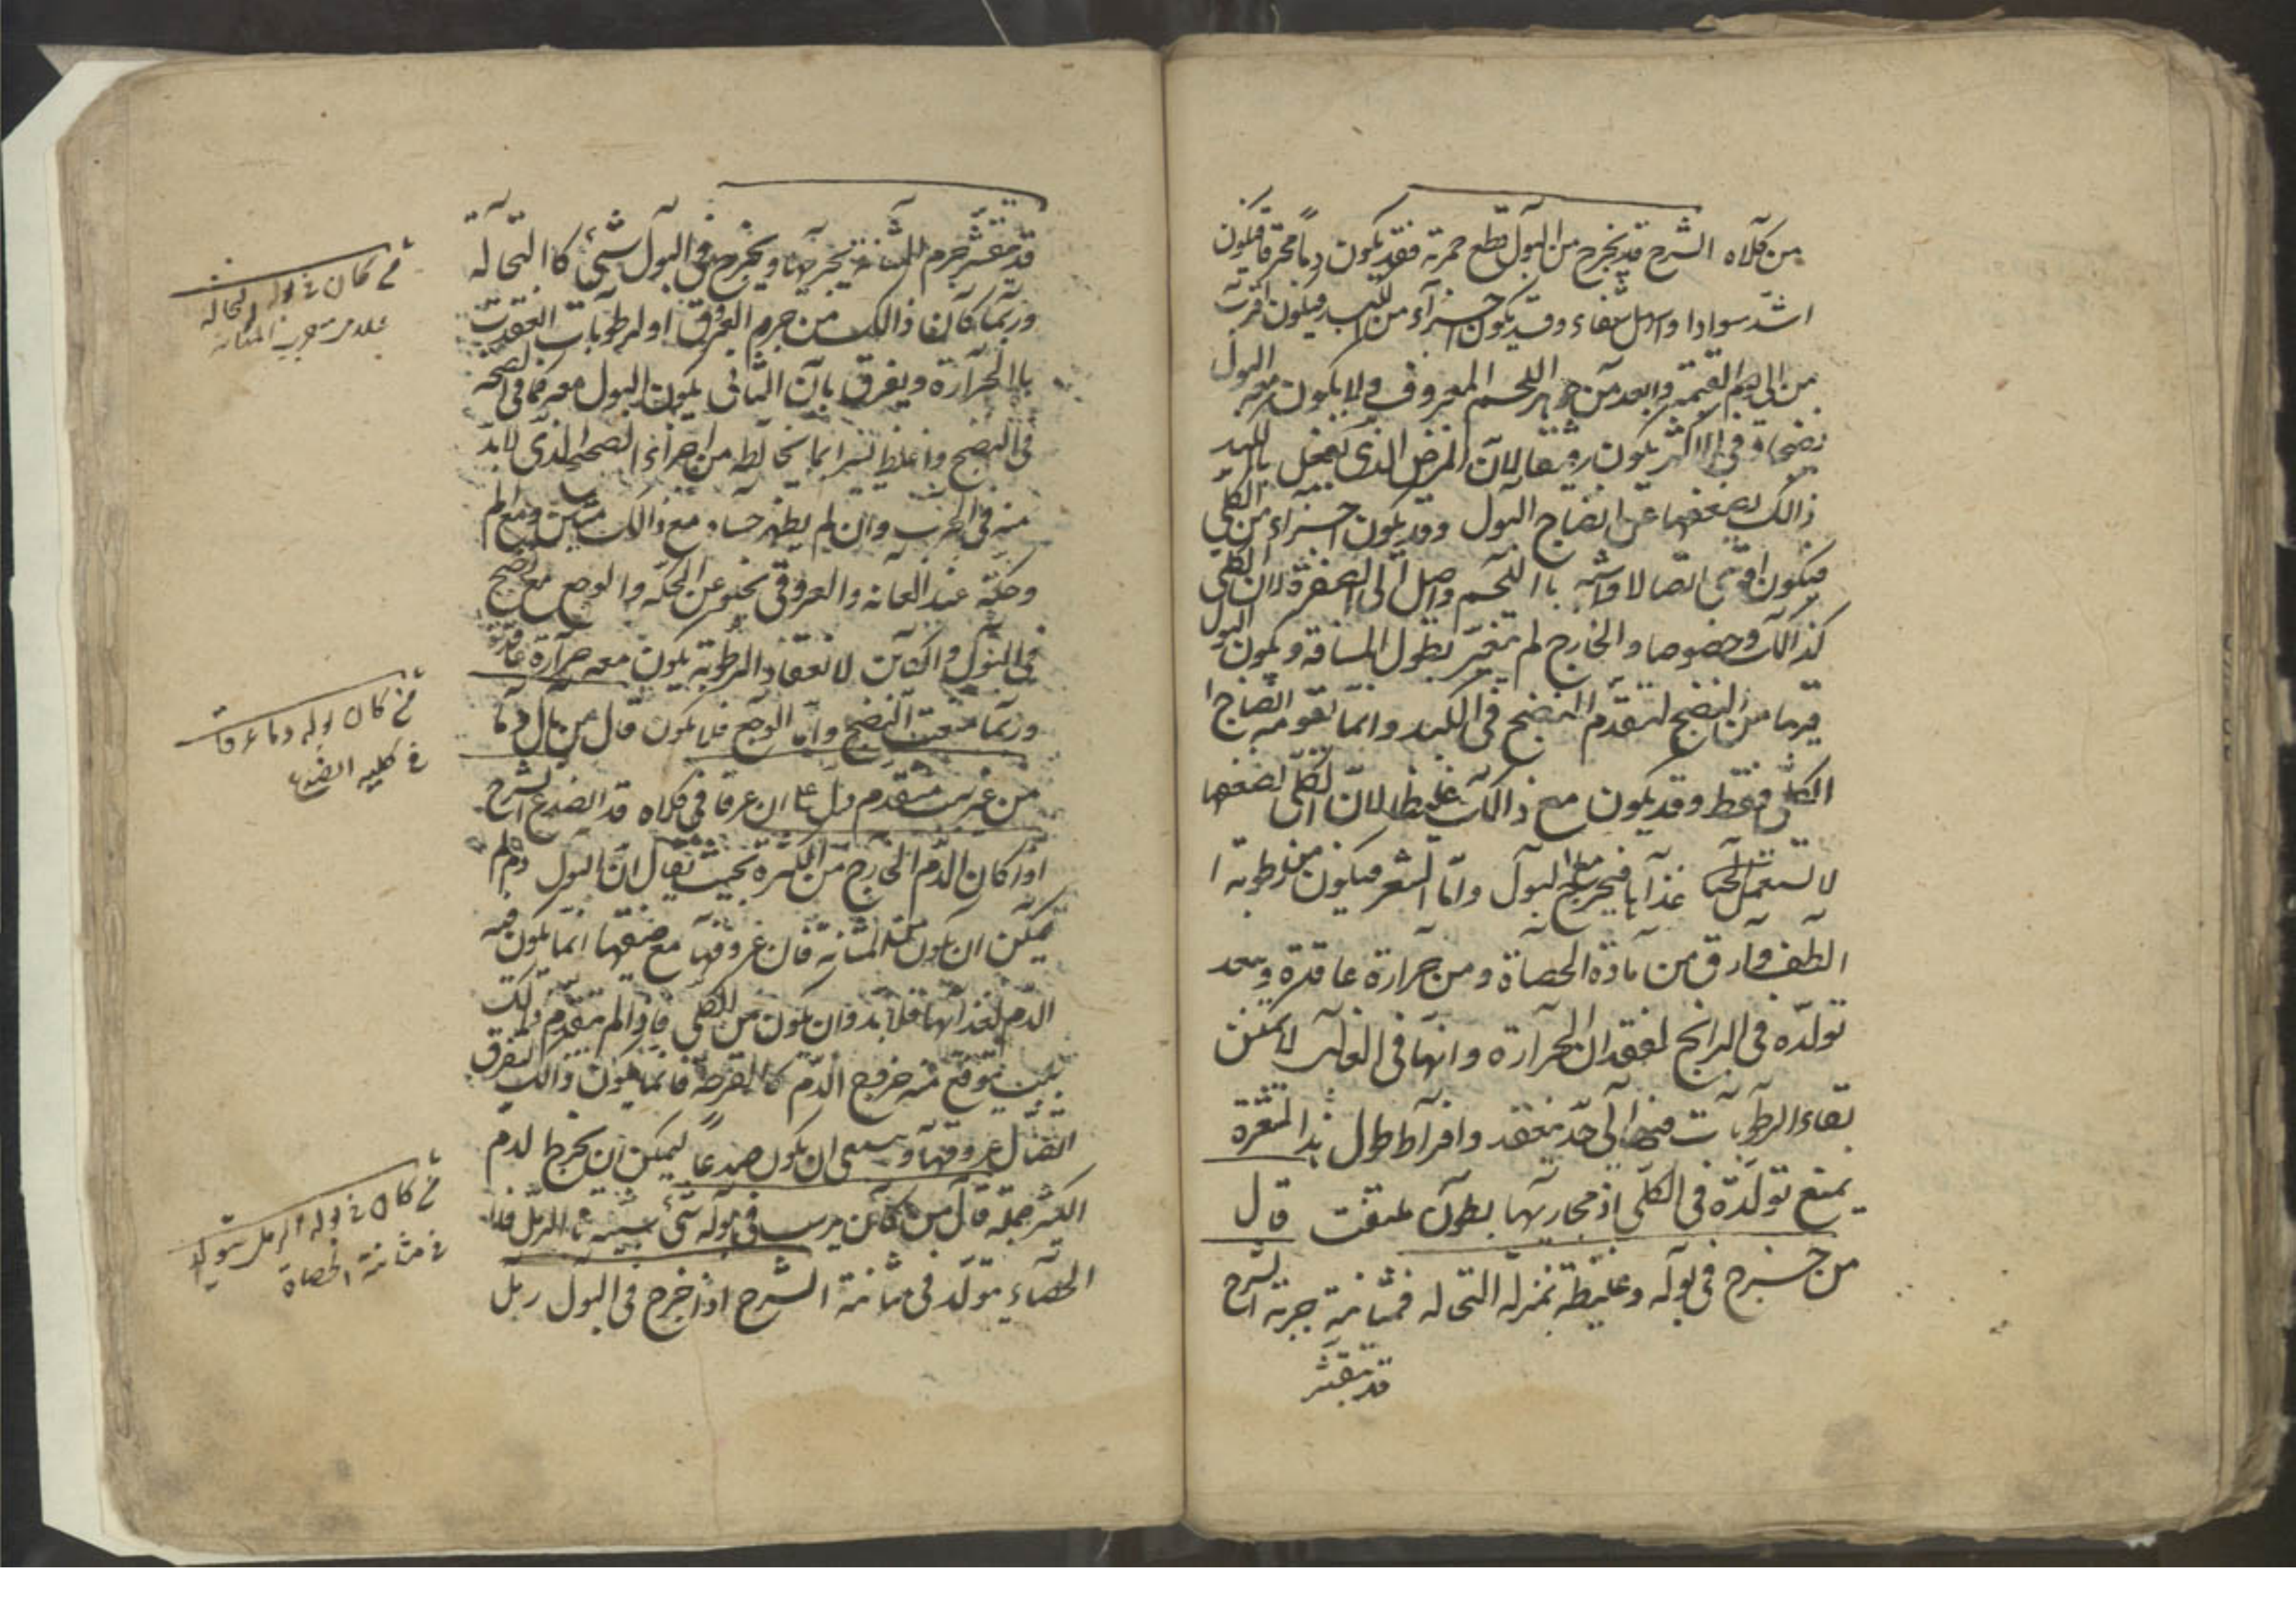 من كلاه الشرح قد يخرج من البول قطع حمرته فقد يكون دماً محترقا فيكون
اشد سوادا واميل شفاء وقد يكون اجزاء من الكبد فيكون اقرب
من الى الدم القيمة وابعد من جوهر اللحم المعروف ولا يكون معه البول
نضجا وفي الاكثر يكون رقيقا لان المرض الذي يفعل بالكبد
ذالك يضعفها عن انضاج البول وقد يكون اجزاء من الكلى
فيكون اقوى اتصالا واشبه باللحم واميل الى الصفرة لان الكلى
كذالك وخصوصا والخارج لم يتغير بطول المسافة ويكون البول
قريبا من النضج لتقدم النضج في الكبد وانما تقومه انضاج
الكلى فقط وقد يكون مع ذالك غليظا لان الكلى لضعفها
لا تستعمل غذآيا فيخرج مع البول واما الشعر فيكون من رطوبة
الطف وآرق من مادة الحصاة ومن حرارة عاقدة وبعد
تولده في البرانج لفقدان الحرارة وانها في الغالب لا يمكن
بقاء الرطوبات فيها الى حد ينعقد وافراط طول هذا الشعرة
يمنع تولده في الكلى اذ مجاريها بطون ضيقت قال
من خرج في بوله وغليظة بمنزلة النخاله فمثانته جربة الشرح
قد تقشر
قد تقشر جرم المثانة بجربها ويخرج في البول شئ كالنخالة
وربما كان ذالك من جرم العروق او لرطوبات انعقدت
بالحرارة ويفرق بان الثاني يكون البول معه كما في الصحة
في النضج واغلظ يسيرا بما يخالطه من اجزاء الصحة الذي لابد
منه في الجرب وان لم يظهر حسا مع ذالك نتن ومع الم
وحكة عند العانه والعروقي يخلو عن الحكه والوجع مع نضج
في البول والكائن لانعقاد الرطوبة يكون معه حرارة عاقدة
وربما منعت النضج واما الوجع فلا يكون قال من بال دما
من غير سبب متقدم دل على ان عرقا في كلاه قد انصدع الشرح
اذا كان الدم الخارج من الكثرة بحيث يقال ان البول دم لم
يمكن ان يكون من المثانة فان عروقها مع ضيقها انما يكون فيه
الدم لغذائها فلا بد وان يكون من الكلى فاذا لم يتقدم ذلك
سبب يتوقع منه خروج الدم كالقرحة فانما يكون ذالك لتفرق
اتصال عروقها وينبغي ان يكون صدعاً ليمكن ان يخرج الدم
الكثير جملة قال من كان يرسب في بوله شئ شبيه بالرمل فان
الحصاء يتولد في مثانته الشرح اذا خرج في البول رمل
من كان في بوله النخاله
علامة جرب المثانه
من كان بوله دما عرقا
في كليه انصدع
من كان في بوله الرمل يتولد
في مثانته الحصاة